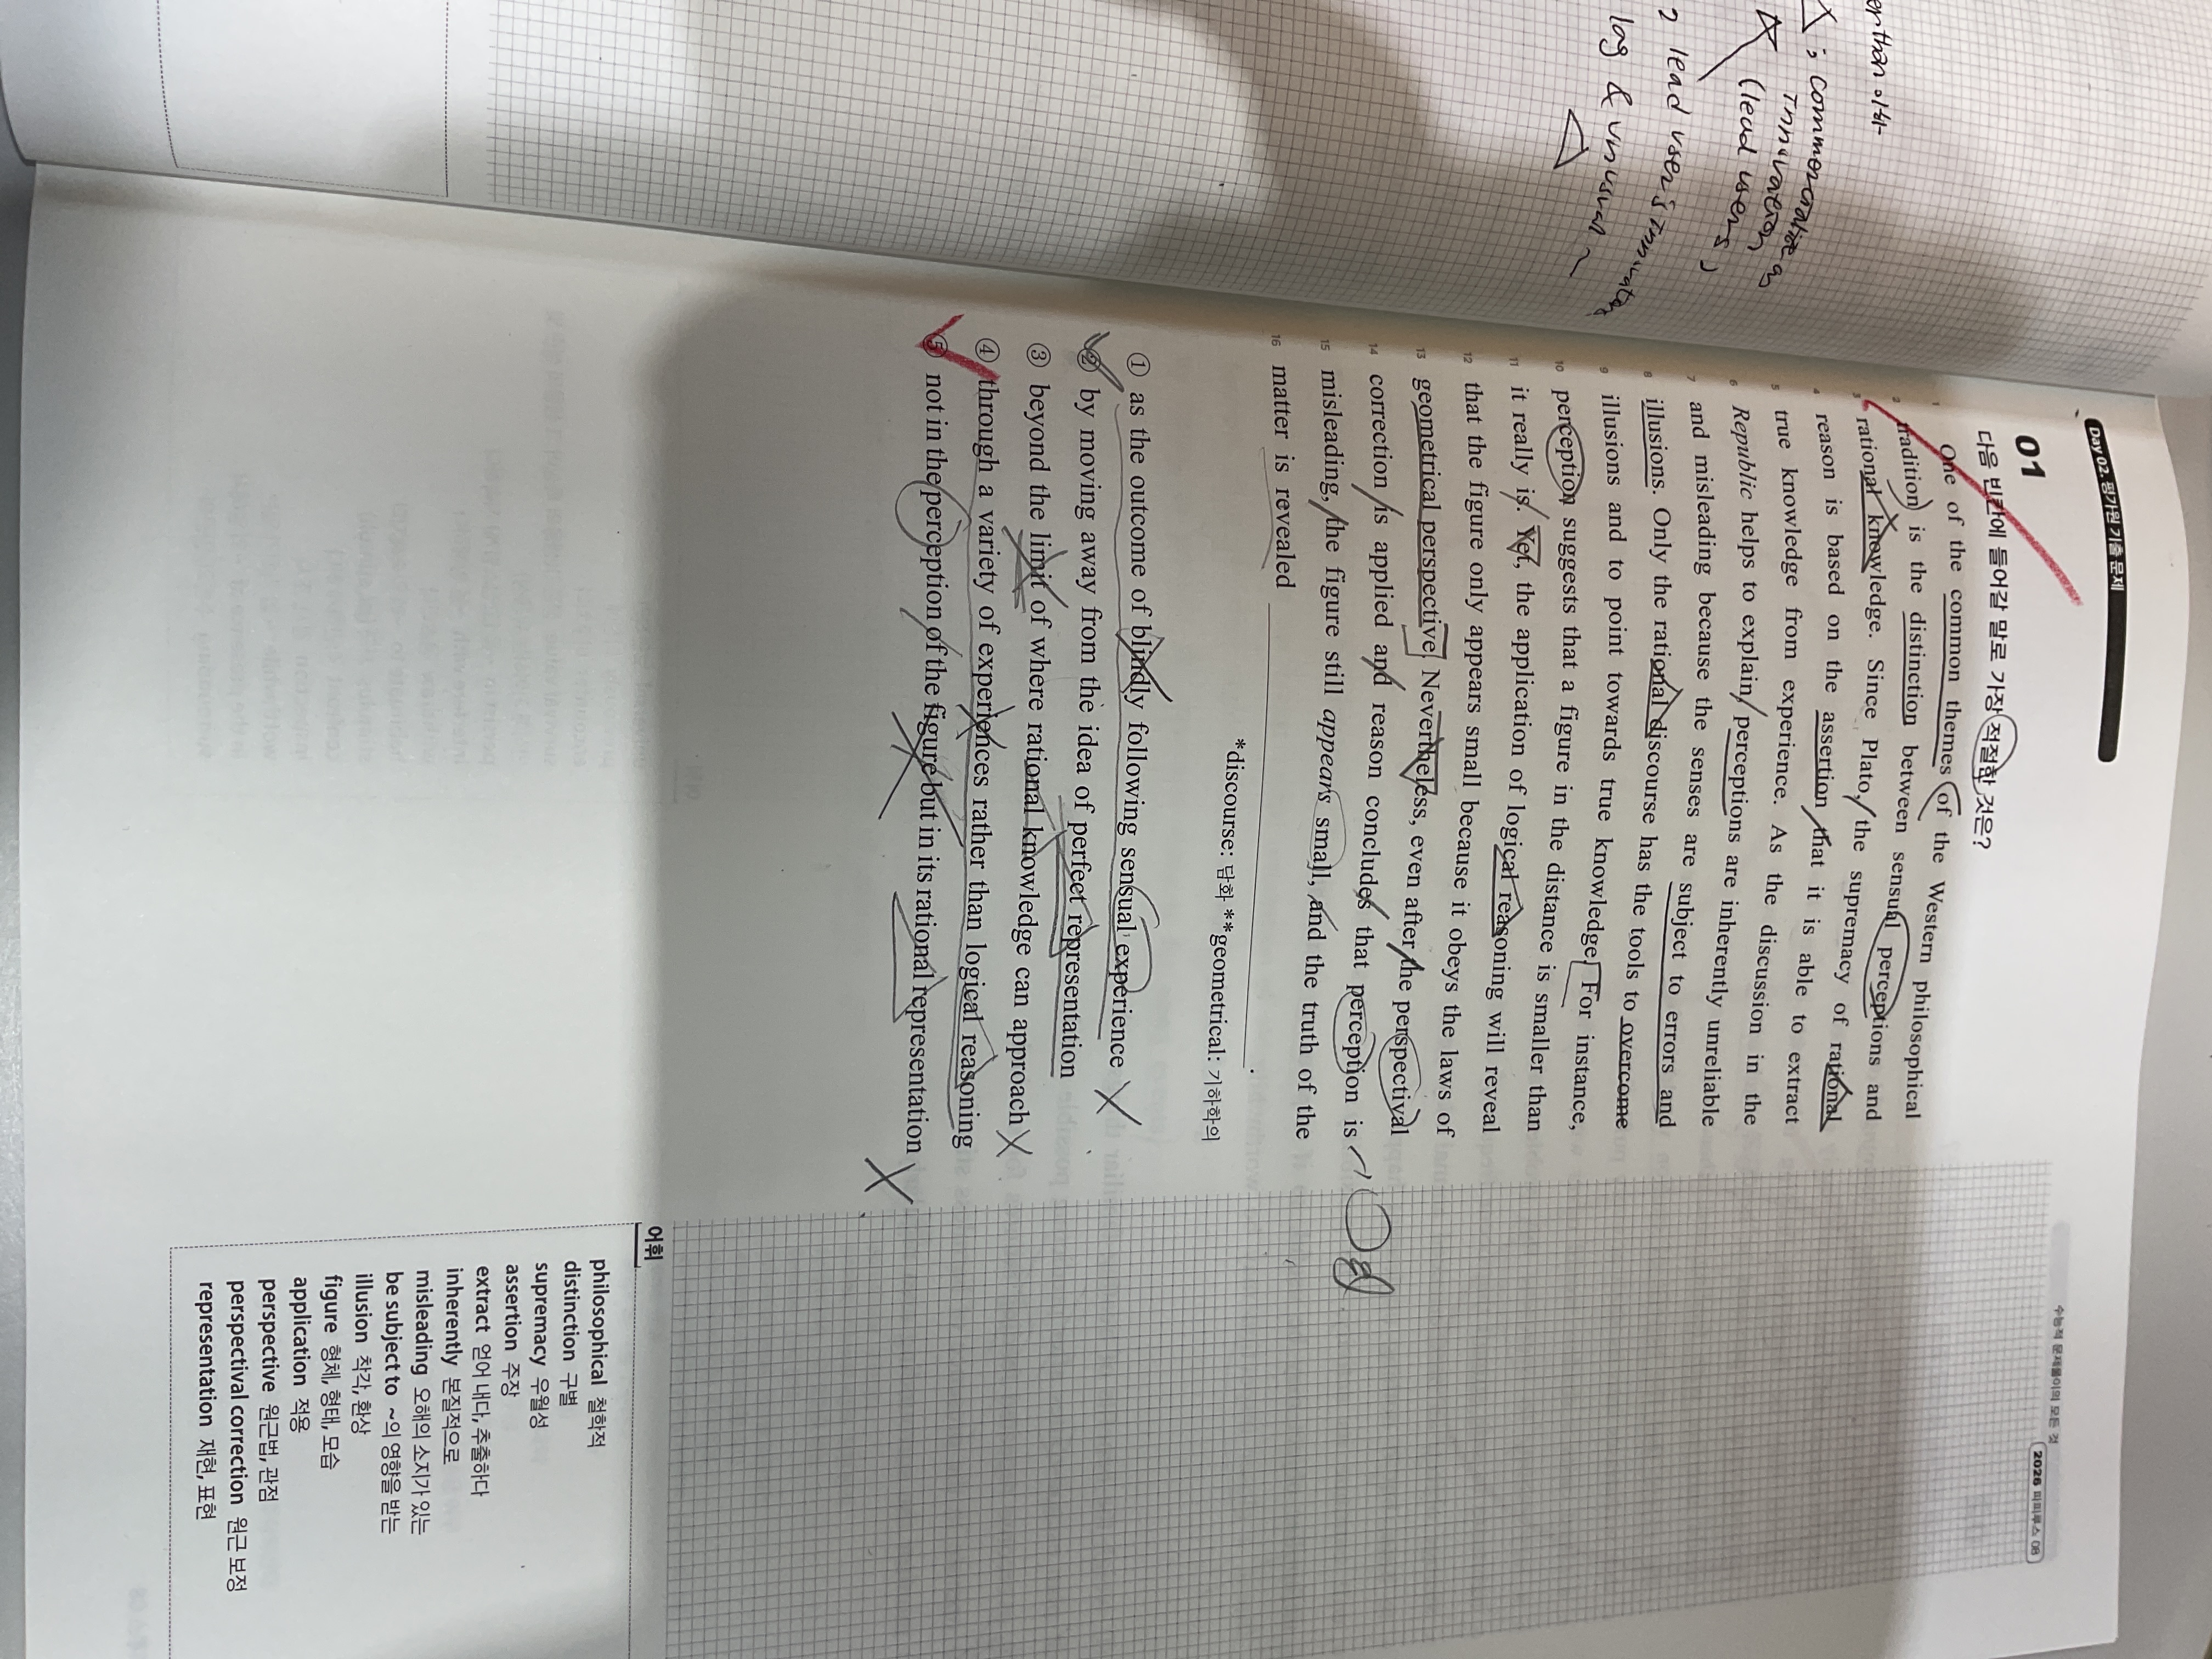 er than 이하-
; commercialize
innovation
(lead users)
2 lead user's innovation
log & unusual ~
Day 02. 평가원 기출 문제
수능적 문제풀이의 모든 것
2026 피피루스 08
01
다음 빈칸에 들어갈 말로 가장 적절한 것은?
1 One of the common themes of the Western philosophical
2 tradition is the distinction between sensual perceptions and
3 rational knowledge. Since Plato, the supremacy of rational
4 reason is based on the assertion that it is able to extract
5 true knowledge from experience. As the discussion in the
6 Republic helps to explain, perceptions are inherently unreliable
7 and misleading because the senses are subject to errors and
8 illusions. Only the rational discourse has the tools to overcome
9 illusions and to point towards true knowledge. For instance,
10 perception suggests that a figure in the distance is smaller than
11 it really is. Yet, the application of logical reasoning will reveal
12 that the figure only appears small because it obeys the laws of
13 geometrical perspective. Nevertheless, even after the perspectival
14 correction is applied and reason concludes that perception is
15 misleading, the figure still appears small, and the truth of the
16 matter is revealed ____________.
*discourse: 담화 **geometrical: 기하학의
① as the outcome of blindly following sensual experience
② by moving away from the idea of perfect representation
③ beyond the limit of where rational knowledge can approach
④ through a variety of experiences rather than logical reasoning
⑤ not in the perception of the figure but in its rational representation
어휘
philosophical 철학적
distinction 구별
supremacy 우월성
assertion 주장
extract 얻어 내다, 추출하다
inherently 본질적으로
misleading 오해의 소지가 있는
be subject to ~의 영향을 받는
illusion 착각, 환상
figure 형체, 형태, 모습
application 적용
perspective 원근법, 관점
perspectival correction 원근 보정
representation 재현, 표현